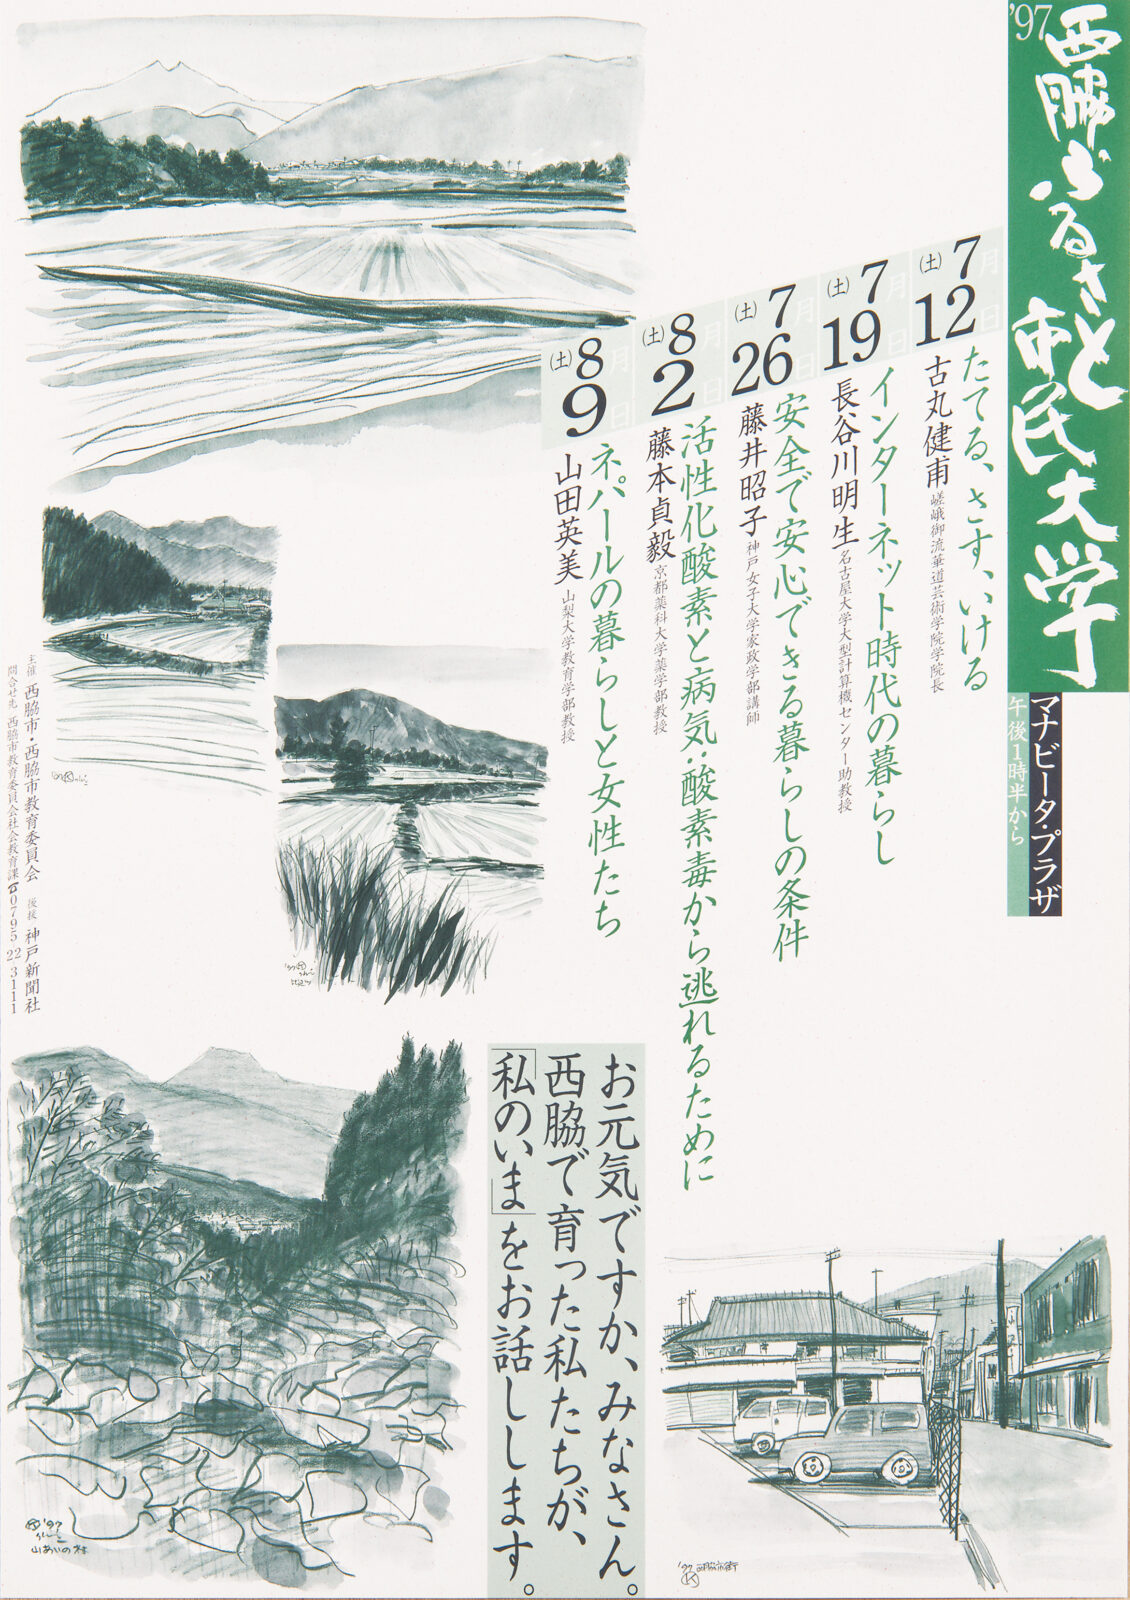 '97
西脇ふるさと市民大学
マナビータ・プラザ
午後1時半から
7月12日(土)
たてる、さす、いける
古丸健甫 嵯峨御流華道芸術学院学院長
7月19日(土)
インターネット時代の暮らし
長谷川明生 名古屋大学大型計算機センター助教授
7月26日(土)
安全で安心できる暮らしの条件
藤井昭子 神戸女子大学家政学部講師
8月2日(土)
活性化酸素と病気・酸素毒から逃れるために
藤本貞毅 京都薬科大学薬学部教授
8月9日(土)
ネパールの暮らしと女性たち
山田英美 山梨大学教育学部教授
お元気ですか、みなさん。
西脇で育った私たちが、
「私のいま」をお話しします。
主催 西脇市・西脇市教育委員会 後援 神戸新聞社
問合せ先 西脇市教育委員会社会教育課 ☎0795 22 3111
'97
'97
'97
山あいの村
'97
西脇市街